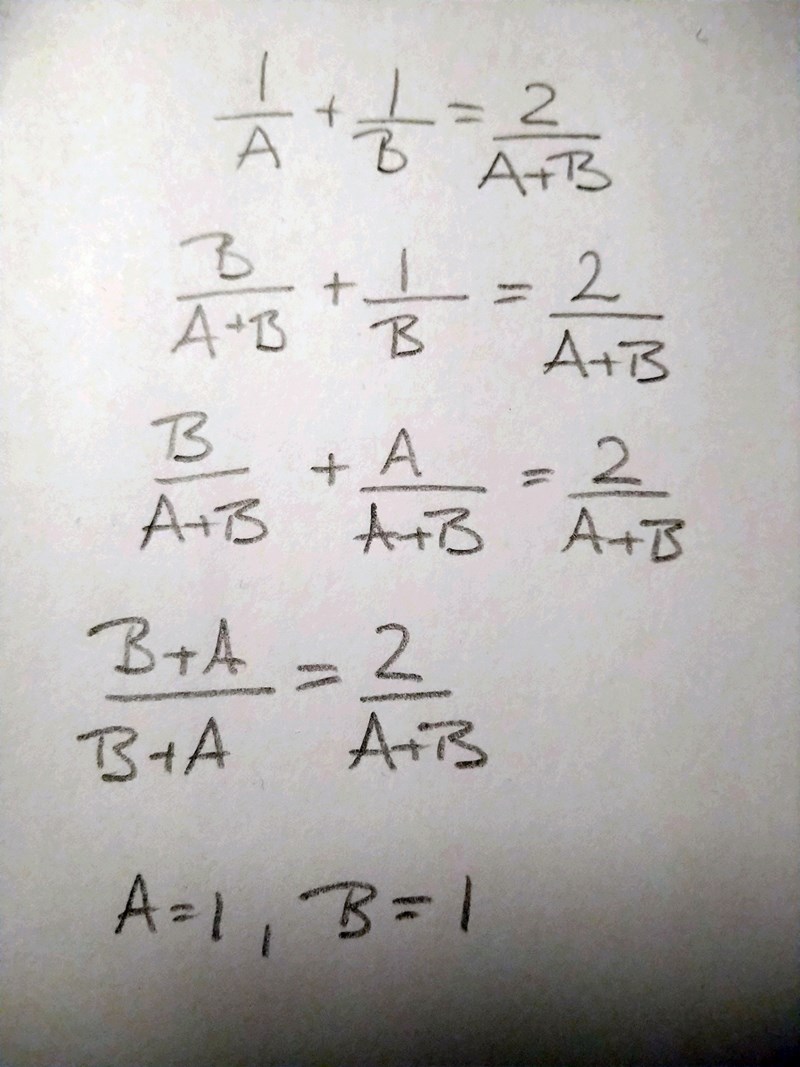 1/A + 1/B = 2/A+B
B/A+B + 1/B = 2/A+B
B/A+B + A/A+B = 2/A+B
B+A/B+A = 2/A+B
A=1, B=1